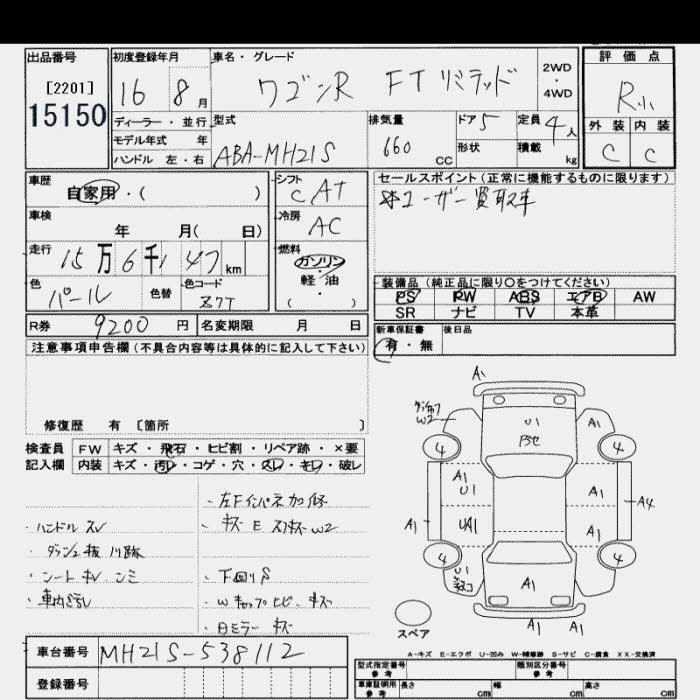 出品番号
[2201]
15150
初度登録年月
16 8 月
車名・グレード
ワゴンR FTリミテッド
2WD
・
4WD
評価点
R小
外装 内装
C C
ディーラー・並行
モデル年式 年
ハンドル 左・右
型式
ABA-MH21S
排気量
660 CC
ドア 5
形状
定員 4人
積載 kg
車歴
自家用・( )
車検
年 月( 日)
走行
15万6千147km
色
パール
色替
色コード
Z7T
シフト
CAT
冷房
AC
燃料
ガソリン
・
軽・油
( )
セールスポイント(正常に機能するものに限ります)
ユーザー買取車
装備品(純正品に限り○をつけてください)
PS PW ABS エアB AW
SR ナビ TV 本革
R券 9200 円
名変期限 月 日
新車保証書
有・無
後日品
注意事項申告欄(不具合内容等は具体的に記入して下さい)
修復歴 有 [箇所 ]
検査員
記入欄
FW キズ・飛石・ヒビ割・リペア跡・×要
内装 キズ・汚レ・コゲ・穴・スレ・キレ・破レ
・ハンドルスレ
・シートキレ
・車内汚レ
・左Fインパネ加修
・下回りS
キズ
A1
W2
U1
A1
4
4
A1
U1
A1
A4
A1
UA1
A1
4
4
U1
A1
A1
A1
スペア
A-キズ E-エクボ U-凹み W-補修跡 S-サビ C-腐食 XX-交換済
車台番号 MH21S-538112
登録番号
型式指定番号
参考
類別区分番号
参考
車庫証明用
参考
長さ cm
幅 cm
高さ cm